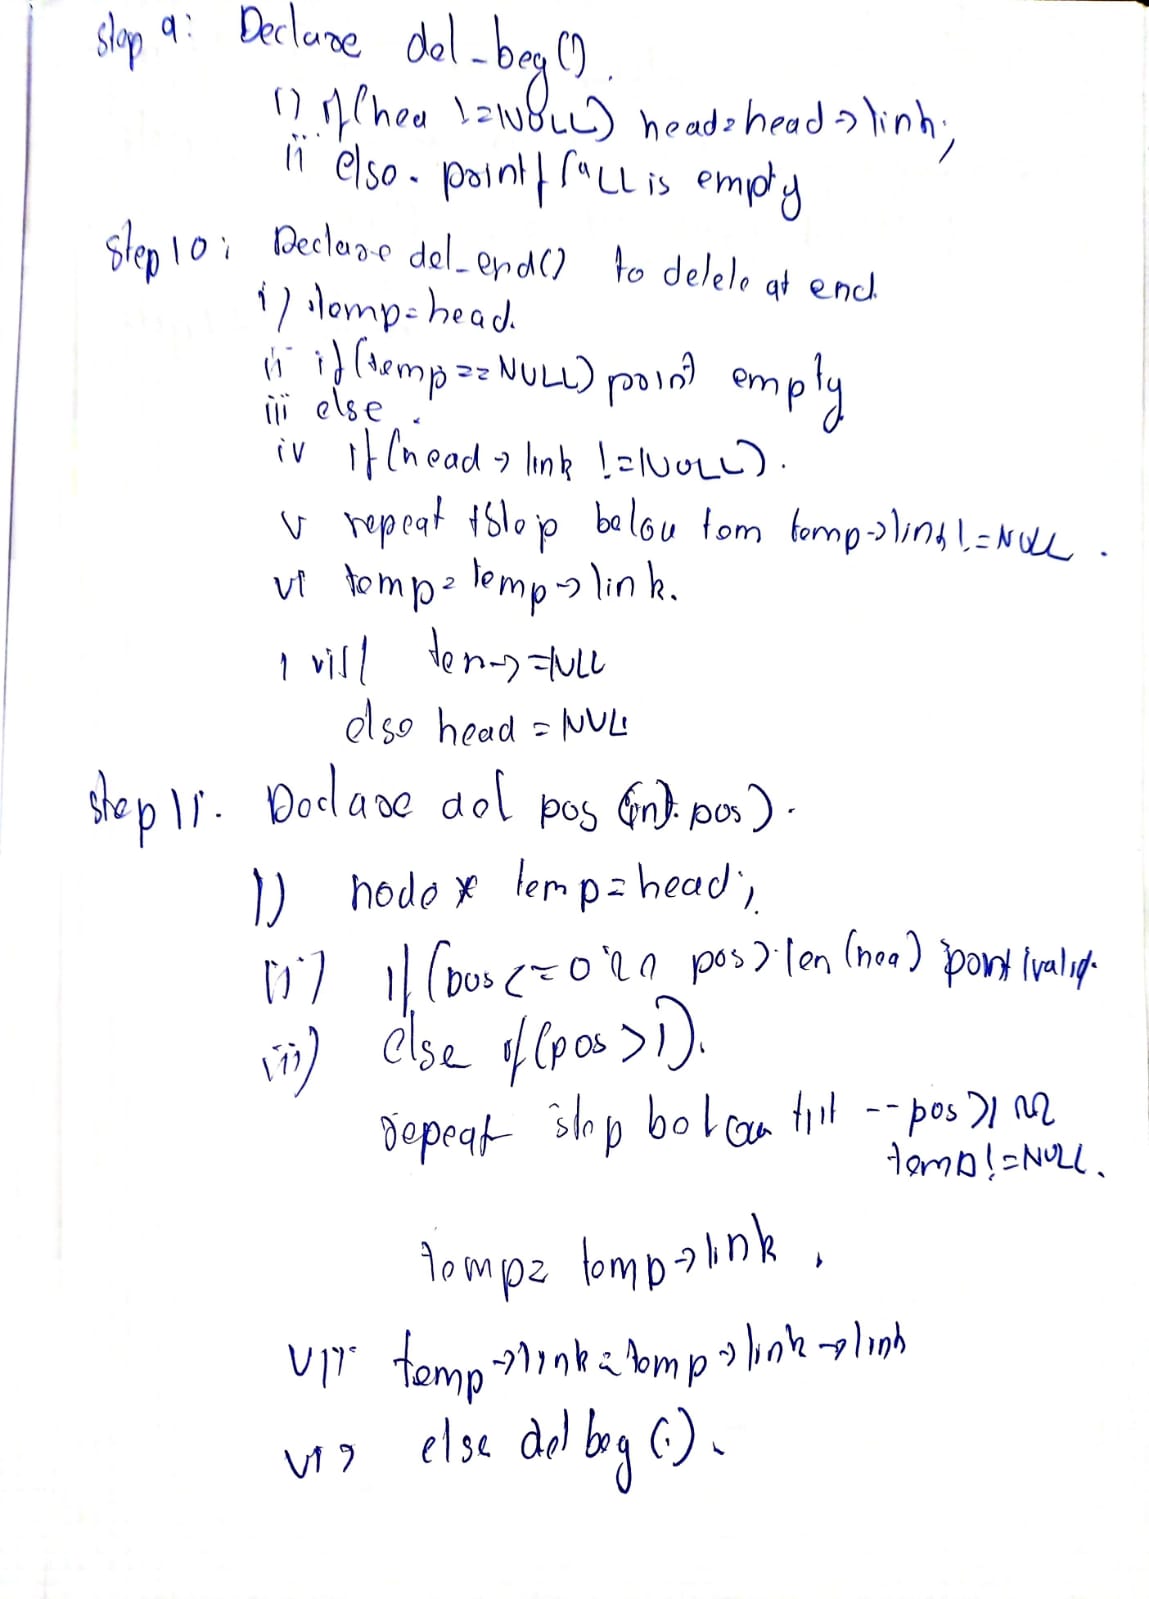 step 9: Declare del_beg().
i) if(hea != NULL) head=head->link;
ii else. printf("LL is empty
Step 10: Declare del_end() to delete at end.
i) temp=head.
ii if(temp==NULL) print empty
iii else.
iv if(head->link !=NULL).
v repeat step below temp->link!=NULL.
vi temp=temp->link.
vii ten->=NULL
else head = NUL
step 11. Declare del pos (int pos).
i) node* temp=head;
ii) if(pos<=0 && pos>len(hea) print ivalid.
iii) else if(pos>1).
repeat step below till --pos>1 &&
temp!=NULL.
temp= temp->link.
vii temp->link=temp->link->link
vi) else del beg().